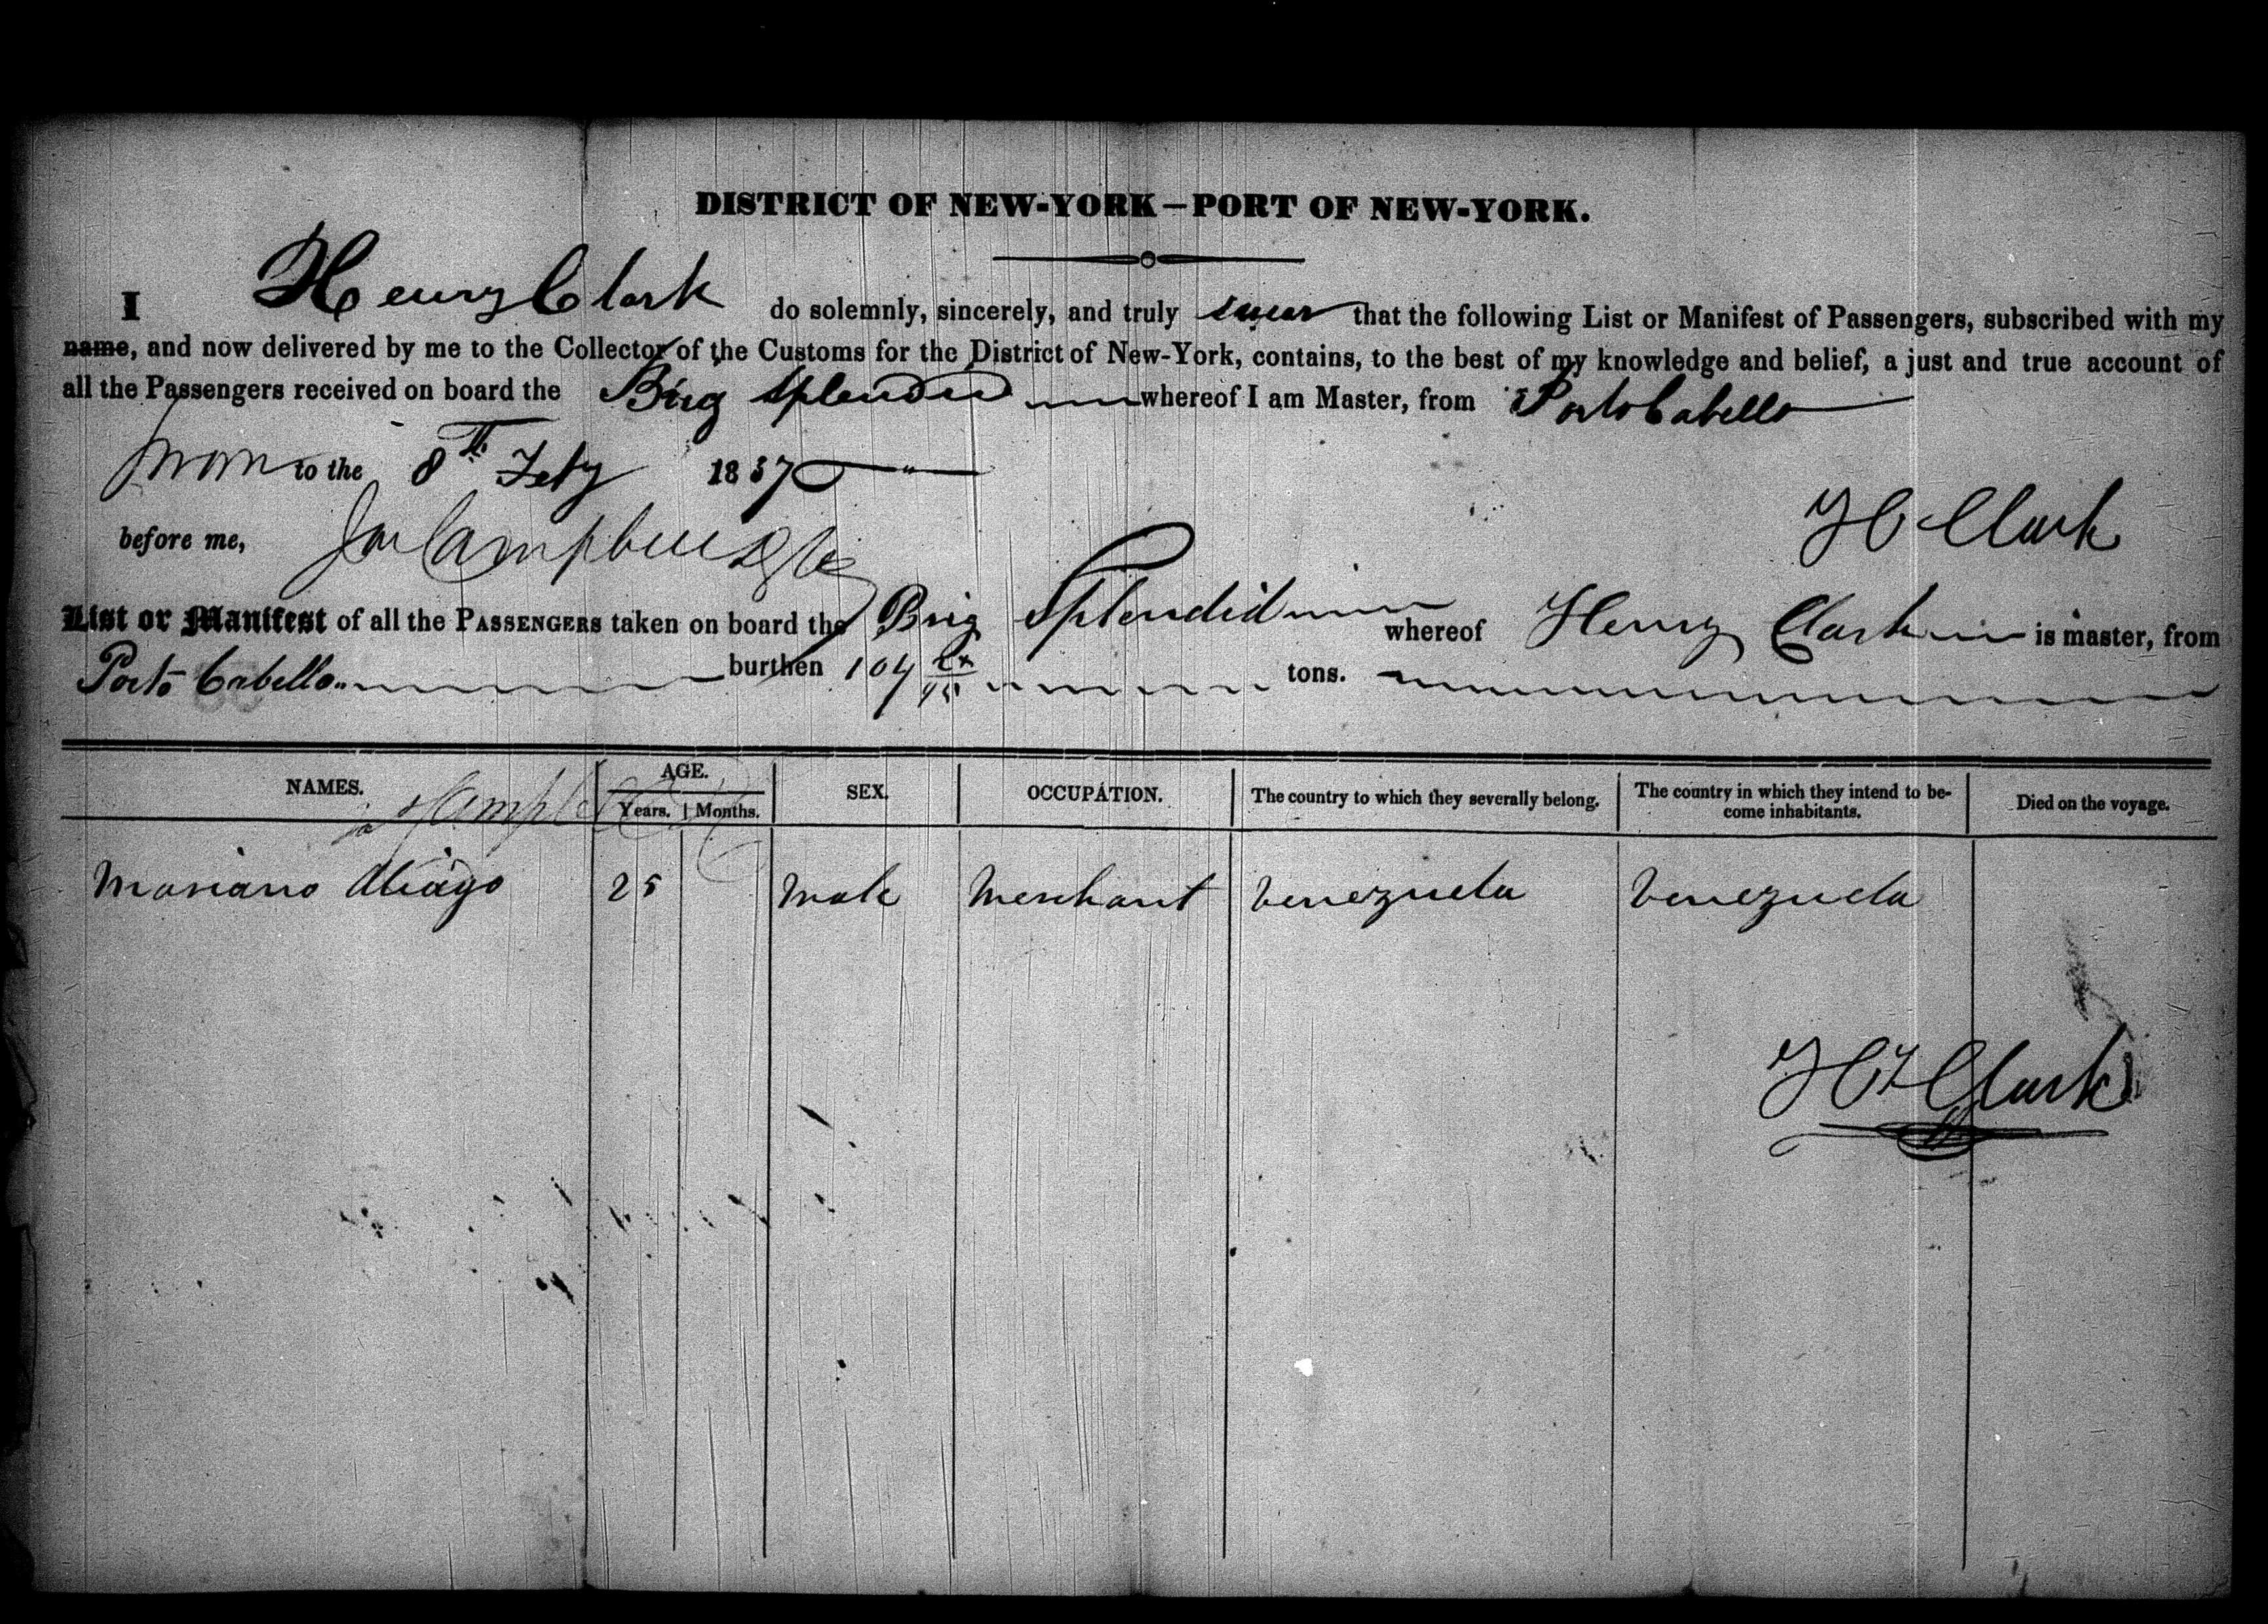 DISTRICT OF NEW-YORK—PORT OF NEW-YORK.
I Henry Clark do solemnly, sincerely, and truly swear that the following List or Manifest of Passengers, subscribed with my
name, and now delivered by me to the Collector of the Customs for the District of New-York, contains, to the best of my knowledge and belief, a just and true account of
all the Passengers received on board the Brig Splendid whereof I am Master, from Porto Cabello
Sworn to the 8th Feby 1837
before me, H Clark
List or Manifest of all the PASSENGERS taken on board the Brig Splendid whereof Henry Clark is master, from
Porto Cabello burthen 104 tons.
NAMES. AGE. SEX. OCCUPATION. The country to which they severally belong. The country in which they intend to be-
come inhabitants. Died on the voyage.
Years. Months.
Mariano 25 Male Merchant Venezuela Venezuela
Clark